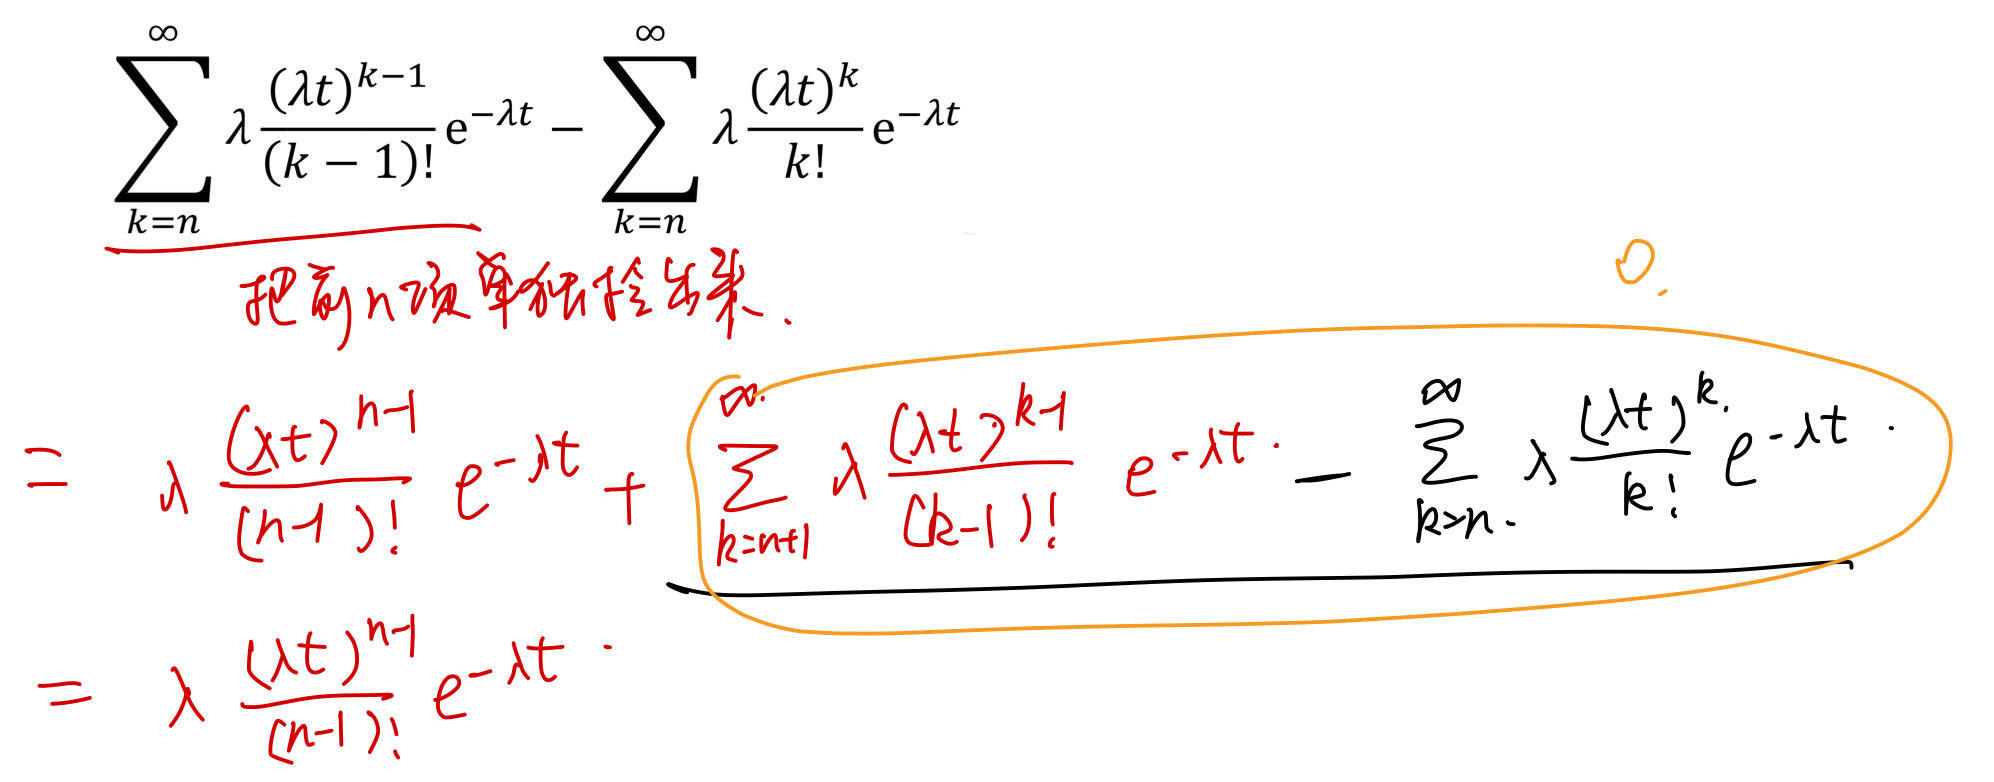 \sum_{k=n}^{\infty} λ \frac{(λt)^{k-1}}{(k-1)!} e^{-λt} - \sum_{k=n}^{\infty} λ \frac{(λt)^k}{k!} e^{-λt}
把前n项单独拎出来.
0.
= λ \frac{(λt)^{n-1}}{(n-1)!} e^{-λt} + \sum_{k=n+1}^{\infty} λ \frac{(λt)^{k-1}}{(k-1)!} e^{-λt} · - \sum_{k=n}^{\infty} λ \frac{(λt)^k}{k!} e^{-λt} ·
= λ \frac{(λt)^{n-1}}{(n-1)!} e^{-λt} ·